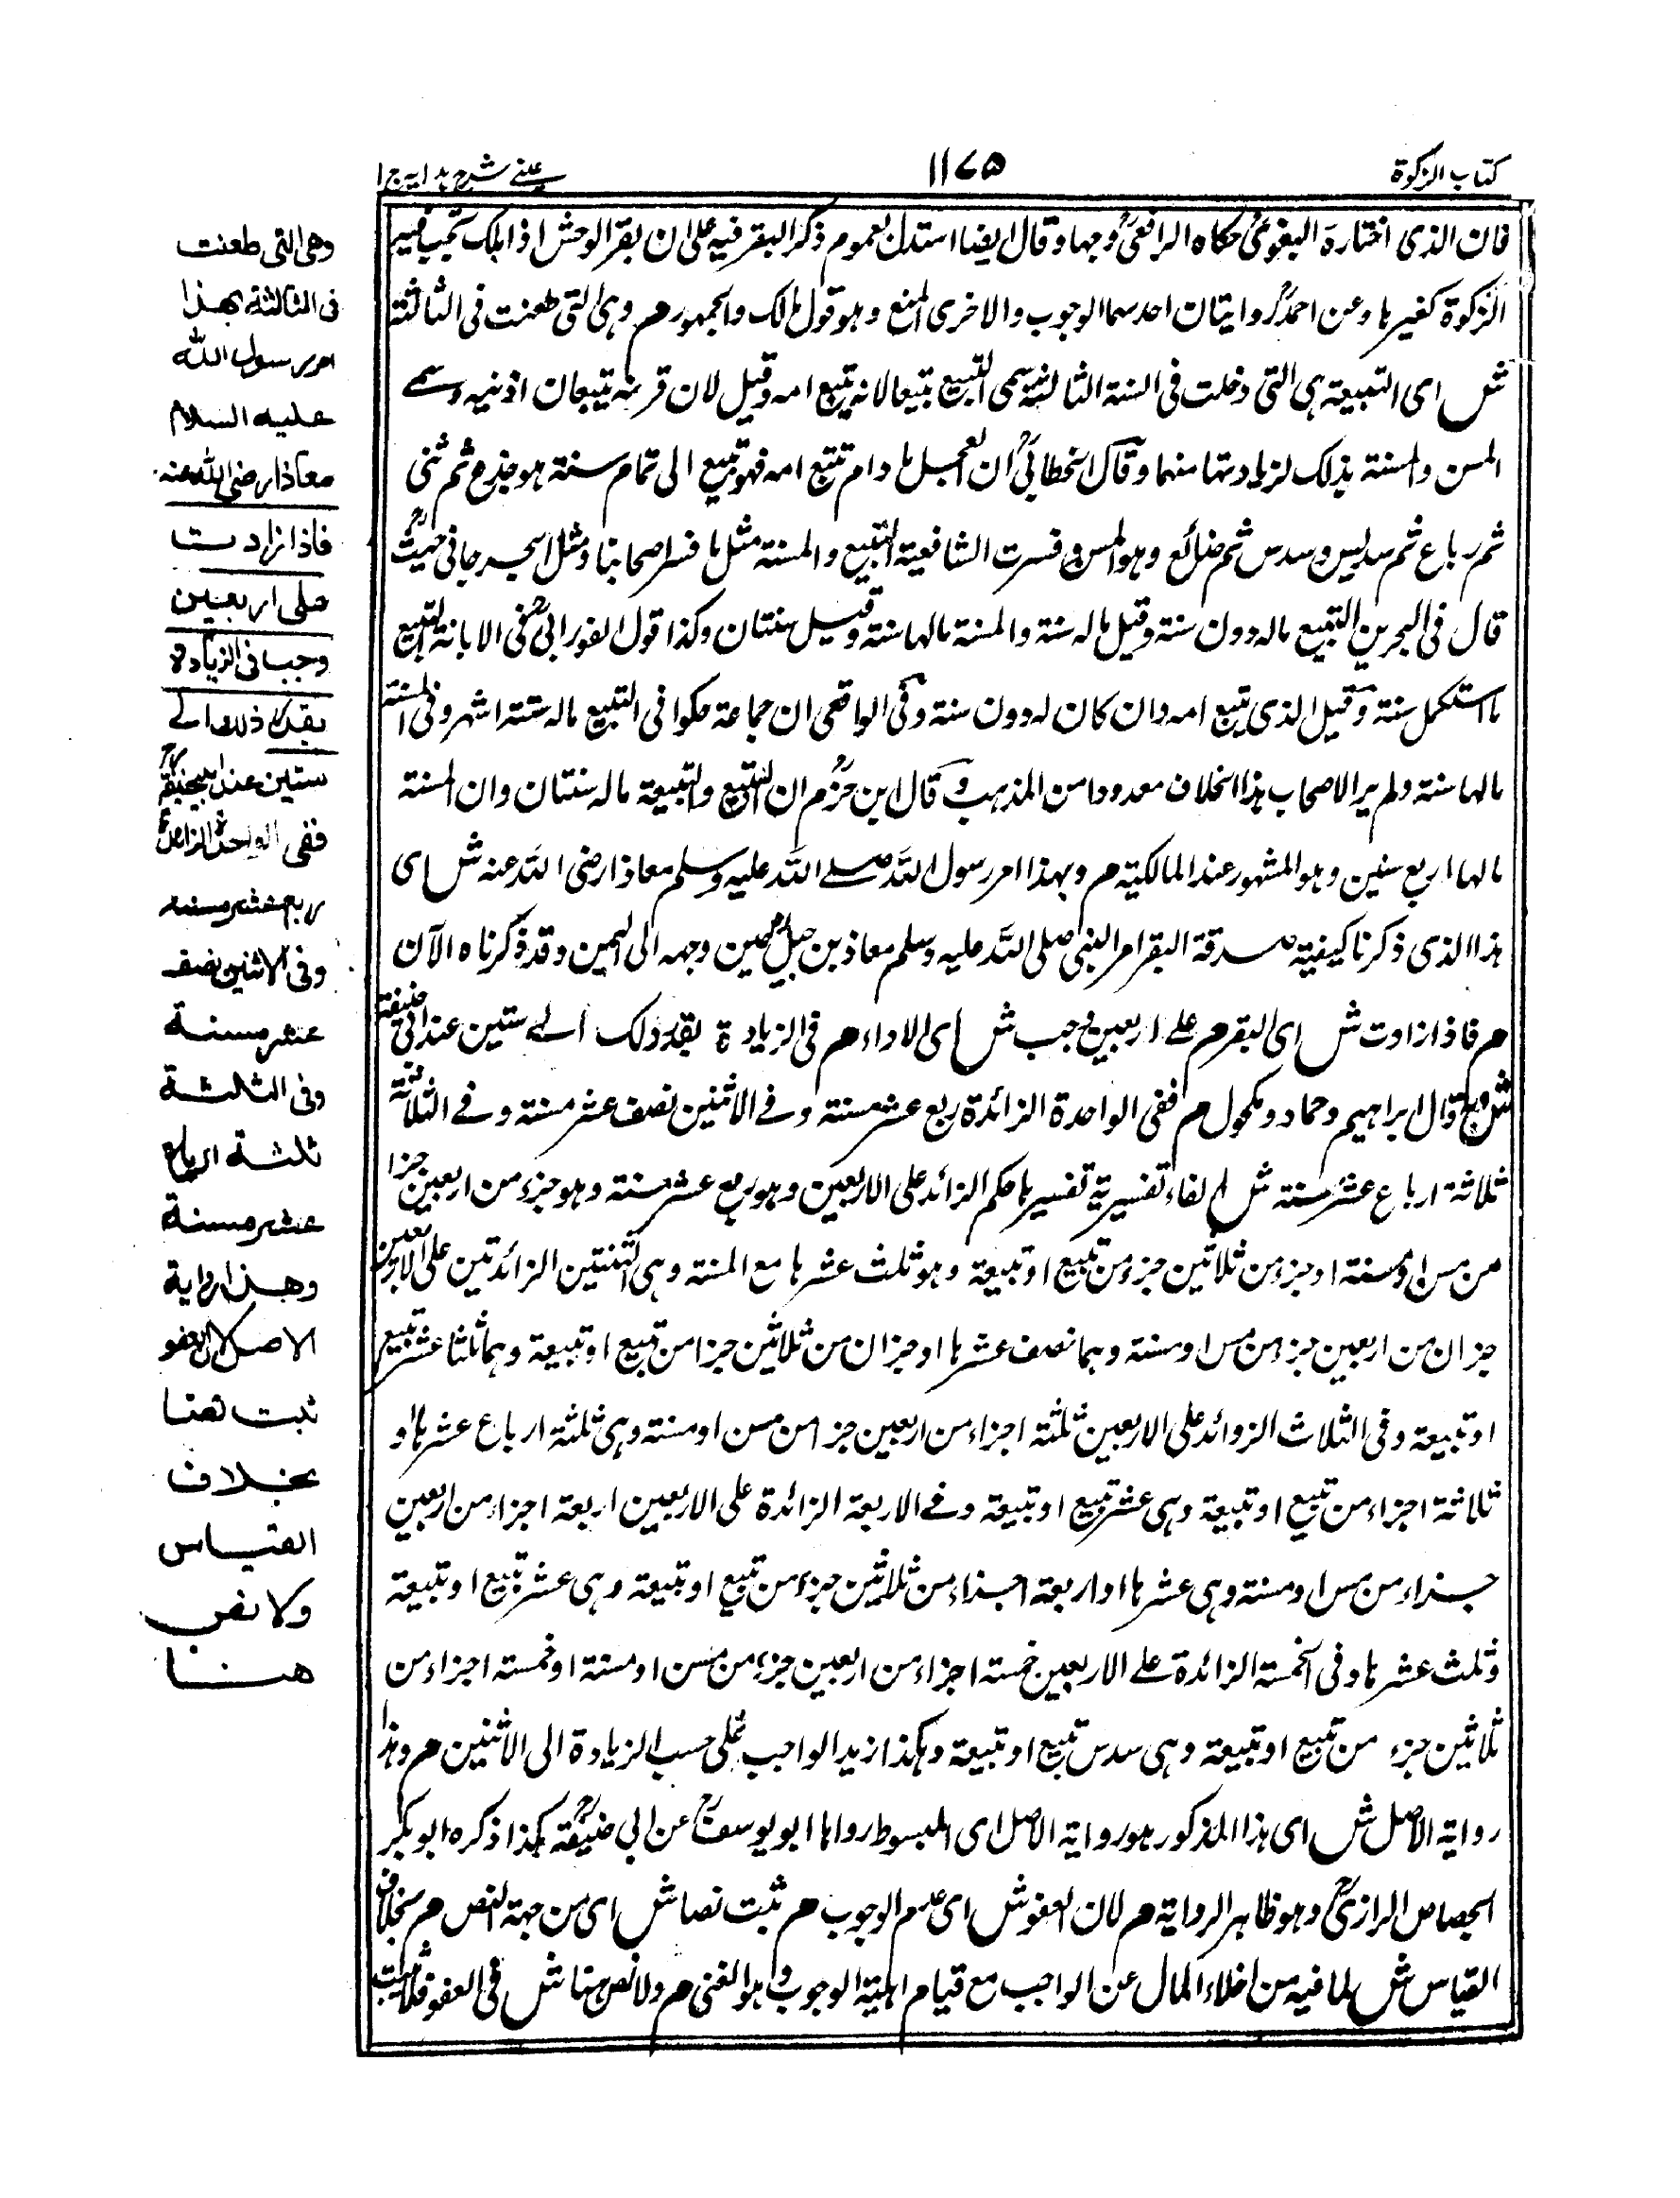 کتاب الزکوة
۱۱۷۵
عینی شرح ہدایہ ج ۱
فان الذی اختارہ البغوی حکاہ الرافعی وجہا وقال ایضا استدل بعموم ذکر البقر فیہ علی ان بقر الوحش اذا ملک تجب فیہ
الزکوة کغیرہا وعن احمد روایتان احدہما الوجوب والاخری المنع وہو قول مالک والجمہور م وہی التی طعنت فی الثالثة
ش ای التبیعة ہی التی دخلت فی السنة الثالثة سمی التبیع تبیعا لانہ یتبع امہ وقیل لان قرنہ یتبعان اذنیہ وسمے
المسن والمسنة بذلک لزیادتہا سنہما وقال الخطابی ان العجل ما دام تتبع امہ فہو تبیع الی تمام سنة ہو جذع ثم ثنی
ثم رباع ثم سدیس وسدس ثم ضائع وہو المسن وفسرت الشافعیة التبیع والمسنة مثل ما فسر اصحابنا ومثل الجرجانی حیث
قال فی البحرین التبیع مالہ دون سنة وقیل مالہ سنة والمسنة مالہا سنة وقیل سنتان وکذا قول الفورانی فی الابانة التبیع
ما استکمل سنة وقیل الذی یتبع امہ وان کان لہ دون سنة وفی الواقعی ان جماعة حکوا فی التبیع مالہ ستة اشہر وفی المسنة
مالہا سنة ولم یر الاصحاب ہذا الخلاف معدودا من المذہب وقال ابن حزم ان التبیع والتبیعة مالہ سنتان وان المسنة
مالہا اربع سنین وہو المشہور عند المالکیة م وبہذا امر رسول اللہ صلے اللہ علیہ وسلم معاذا رضی اللہ عنہ ش ای
ہذا الذی ذکرنا کیفیة صدقة البقر امر النبی صلی اللہ علیہ وسلم معاذ بن جبل حین وجہہ الی الیمن وقد ذکرناہ الآن
م فاذا زادت ش ای البقر م علے اربعین وجب ش ای الاداء م فی الزیادة بقدر ذلک الے ستین عند ابی حنیفة
ش وبہ قال ابراہیم وحماد ومکحول م ففی الواحدة الزائدة ربع عشر مسنة وفے الاثنین نصف عشر مسنة وفے الثلاثة
ثلاثة ارباع عشر مسنة ش الفاء تفسیریة تفسیر ما حکم الزائد علی الاربعین وہو ربع عشر مسنة وہو جزء من اربعین جزا
من مسن او مسنة او جزء من ثلاثین جزء من تبیع او تبیعة وہو ثلث عشرہا مع المسنة وہی الثنتین الزائدتین علی الاربعین
جزان من اربعین جزء من مسن او مسنة وہما نصف عشرہا او جزان من ثلاثین جزا من تبیع او تبیعة وہما ثلثا عشر تبیع
او تبیعة وفی الثلاث الزوائد علی الاربعین ثلثة اجزاء من اربعین جزا من مسن او مسنة وہی ثلثة ارباع عشرہا او
ثلاثة اجزاء من تبیع او تبیعة وہی عشر تبیع او تبیعة وفے الاربعة الزائدة علی الاربعین اربعة اجزاء من اربعین
جزاء من مسن او مسنة وہی عشرہا او اربعة اجزاء من ثلاثین جزء من تبیع او تبیعة وہی عشر تبیع او تبیعة
وثلث عشرہا وفی الخمسة الزائدة علے الاربعین خمسة اجزاء من اربعین جزء من مسن او مسنة او خمسة اجزاء من
ثلاثین جزء من تبیع او تبیعة وہی سدس تبیع او تبیعة وہکذا زید الواجب علی حسب الزیادة الی الاثنین م وہذا
روایة الاصل ش ای ہذا المذکور ہو روایة الاصل ای المبسوط رواہا ابو یوسف عن ابی حنیفة ہکذا ذکرہ ابو بکر
الجصاص الرازی وہو ظاہر الروایة م لان العفو ش ای عدم الوجوب م ثبت نصا ش ای من جہة النص م بخلاف
القیاس ش لما فیہ من اخلاء المال عن الواجب مع قیام اہلیة الوجوب وہو الغنی م ولا نص ہنا ش فی العفو فلا یثبت
وهی التی طعنت
فی الثالثة بهذا
امر رسول الله
علیه السلام
معاذا رضی الله عنه
فاذا زادت
علی اربعین
وجب فی الزیادة
بقدر ذلک الے
ستین عند ابی حنیفة
ففی الواحدة الزائدة
ربع عشر مسنة
وفی الاثنین نصف
عشر مسنة
وفی الثلثة
ثلثة ارباع
عشر مسنة
وهذا روایة
الاصل لان العفو
ثبت نصا
بخلاف
القیاس
ولا نص
هنا